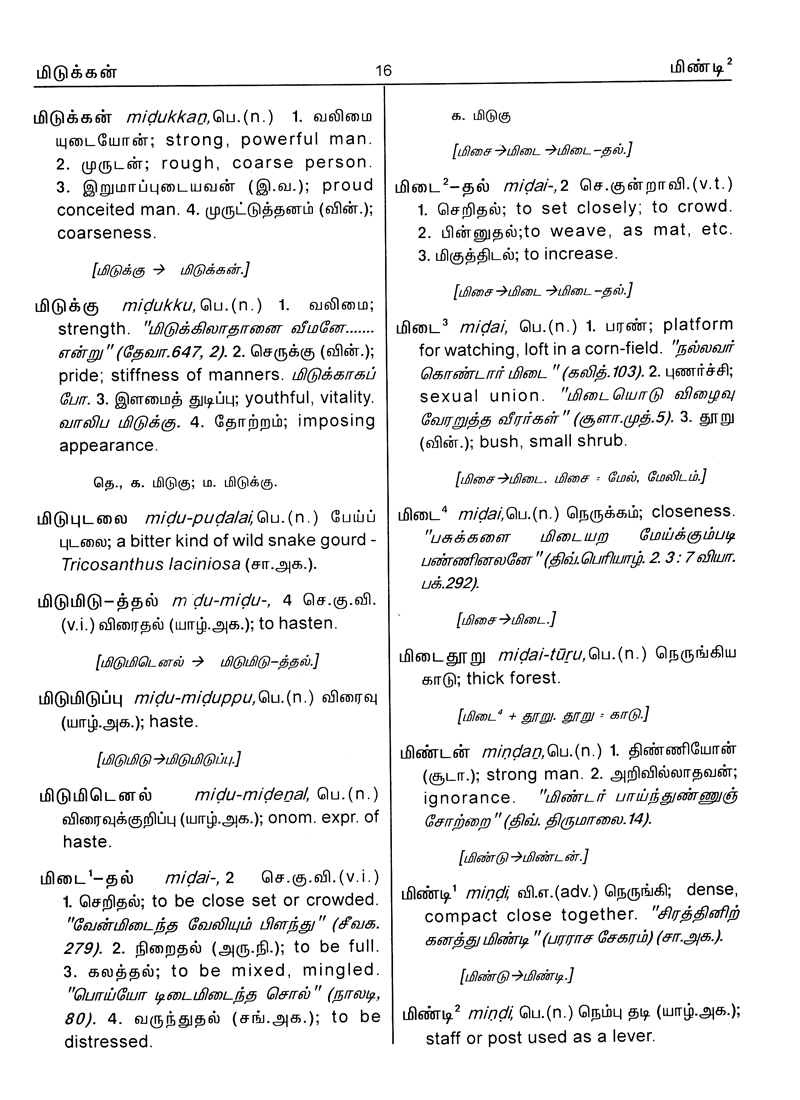 மிடுக்கன்
16
மிண்டி²
மிடுக்கன் miḍukkaṉ,பெ.(n.) 1. வலிமை
யுடையோன்; strong, powerful man.
2. முருடன்; rough, coarse person.
3. இறுமாப்புடையவன் (இ.வ.); proud
conceited man. 4. முருட்டுத்தனம் (வின்.);
coarseness.
[மிடுக்கு → மிடுக்கன்.]
மிடுக்கு miḍukku,பெ.(n.) 1. வலிமை;
strength. "மிடுக்கிலாதானை வீமனே.......
என்று" (தேவா.647, 2). 2. செருக்கு (வின்.);
pride; stiffness of manners. மிடுக்காகப்
போ. 3. இளமைத் துடிப்பு; youthful, vitality.
வாலிப மிடுக்கு. 4. தோற்றம்; imposing
appearance.
தெ., க. மிடுகு; ம. மிடுக்கு.
மிடுபுடலை miḍu-puḍalai,பெ.(n.) பேய்ப்
புடலை; a bitter kind of wild snake gourd -
Tricosanthus laciniosa (சா.அக.).
மிடுமிடு-த்தல் m ḍu-miḍu-, 4 செ.கு.வி.
(v.i.) விரைதல் (யாழ்.அக.); to hasten.
[மிடுமிடெனல் → மிடுமிடு-த்தல்.]
மிடுமிடுப்பு miḍu-miḍuppu,பெ.(n.) விரைவு
(யாழ்.அக.); haste.
[மிடுமிடு→மிடுமிடுப்பு.]
மிடுமிடெனல் miḍu-miḍeṉal, பெ.(n.)
விரைவுக்குறிப்பு (யாழ்.அக.); onom. expr. of
haste.
மிடை¹-தல் miḍai-, 2 செ.கு.வி.(v.i.)
1. செறிதல்; to be close set or crowded.
"வேன்மிடைந்த வேலியும் பிளந்து" (சீவக.
279). 2. நிறைதல் (அரு.நி.); to be full.
3. கலத்தல்; to be mixed, mingled.
"பொய்யோ டிடைமிடைந்த சொல்" (நாலடி,
80). 4. வருந்துதல் (சங்.அக.); to be
distressed.
க. மிடுகு
[மிசை→மிடை→மிடை-தல்.]
மிடை²-தல் miḍai-,2 செ.குன்றாவி.(v.t.)
1. செறிதல்; to set closely; to crowd.
2. பின்னுதல்;to weave, as mat, etc.
3. மிகுத்திடல்; to increase.
[மிசை→மிடை→மிடை-தல்.]
மிடை³ miḍai, பெ.(n.) 1. பரண்; platform
for watching, loft in a corn-field. "நல்லவர்
கொண்டார் மிடை" (கலித்.103). 2. புணர்ச்சி;
sexual union. "மிடையொடு விழைவு
வேரறுத்த வீரர்கள்" (சூளா.முத்.5). 3. தூறு
(வின்.); bush, small shrub.
[மிசை→மிடை. மிசை = மேல், மேலிடம்.]
மிடை⁴ miḍai,பெ.(n.) நெருக்கம்; closeness.
"பசுக்களை மிடையற மேய்க்கும்படி
பண்ணினலனே" (திவ்.பெரியாழ். 2. 3 : 7 வியா.
பக்.292).
[மிசை→மிடை.]
மிடைதூறு miḍai-tūṟu,பெ.(n.) நெருங்கிய
காடு; thick forest.
[மிடை⁴ + தூறு. தூறு = காடு.]
மிண்டன் miṇḍaṉ,பெ.(n.) 1. திண்ணியோன்
(சூடா.); strong man. 2. அறிவில்லாதவன்;
ignorance. "மிண்டர் பாய்ந்துண்ணுஞ்
சோற்றை" (திவ். திருமாலை.14).
[மிண்டு→மிண்டன்.]
மிண்டி¹ miṇḍi, வி.எ.(adv.) நெருங்கி; dense,
compact close together. "சிரத்தினிற்
கனத்து மிண்டி" (பரராச சேகரம்) (சா.அக.).
[மிண்டு→மிண்டி.]
மிண்டி² miṇḍi, பெ.(n.) நெம்பு தடி (யாழ்.அக.);
staff or post used as a lever.